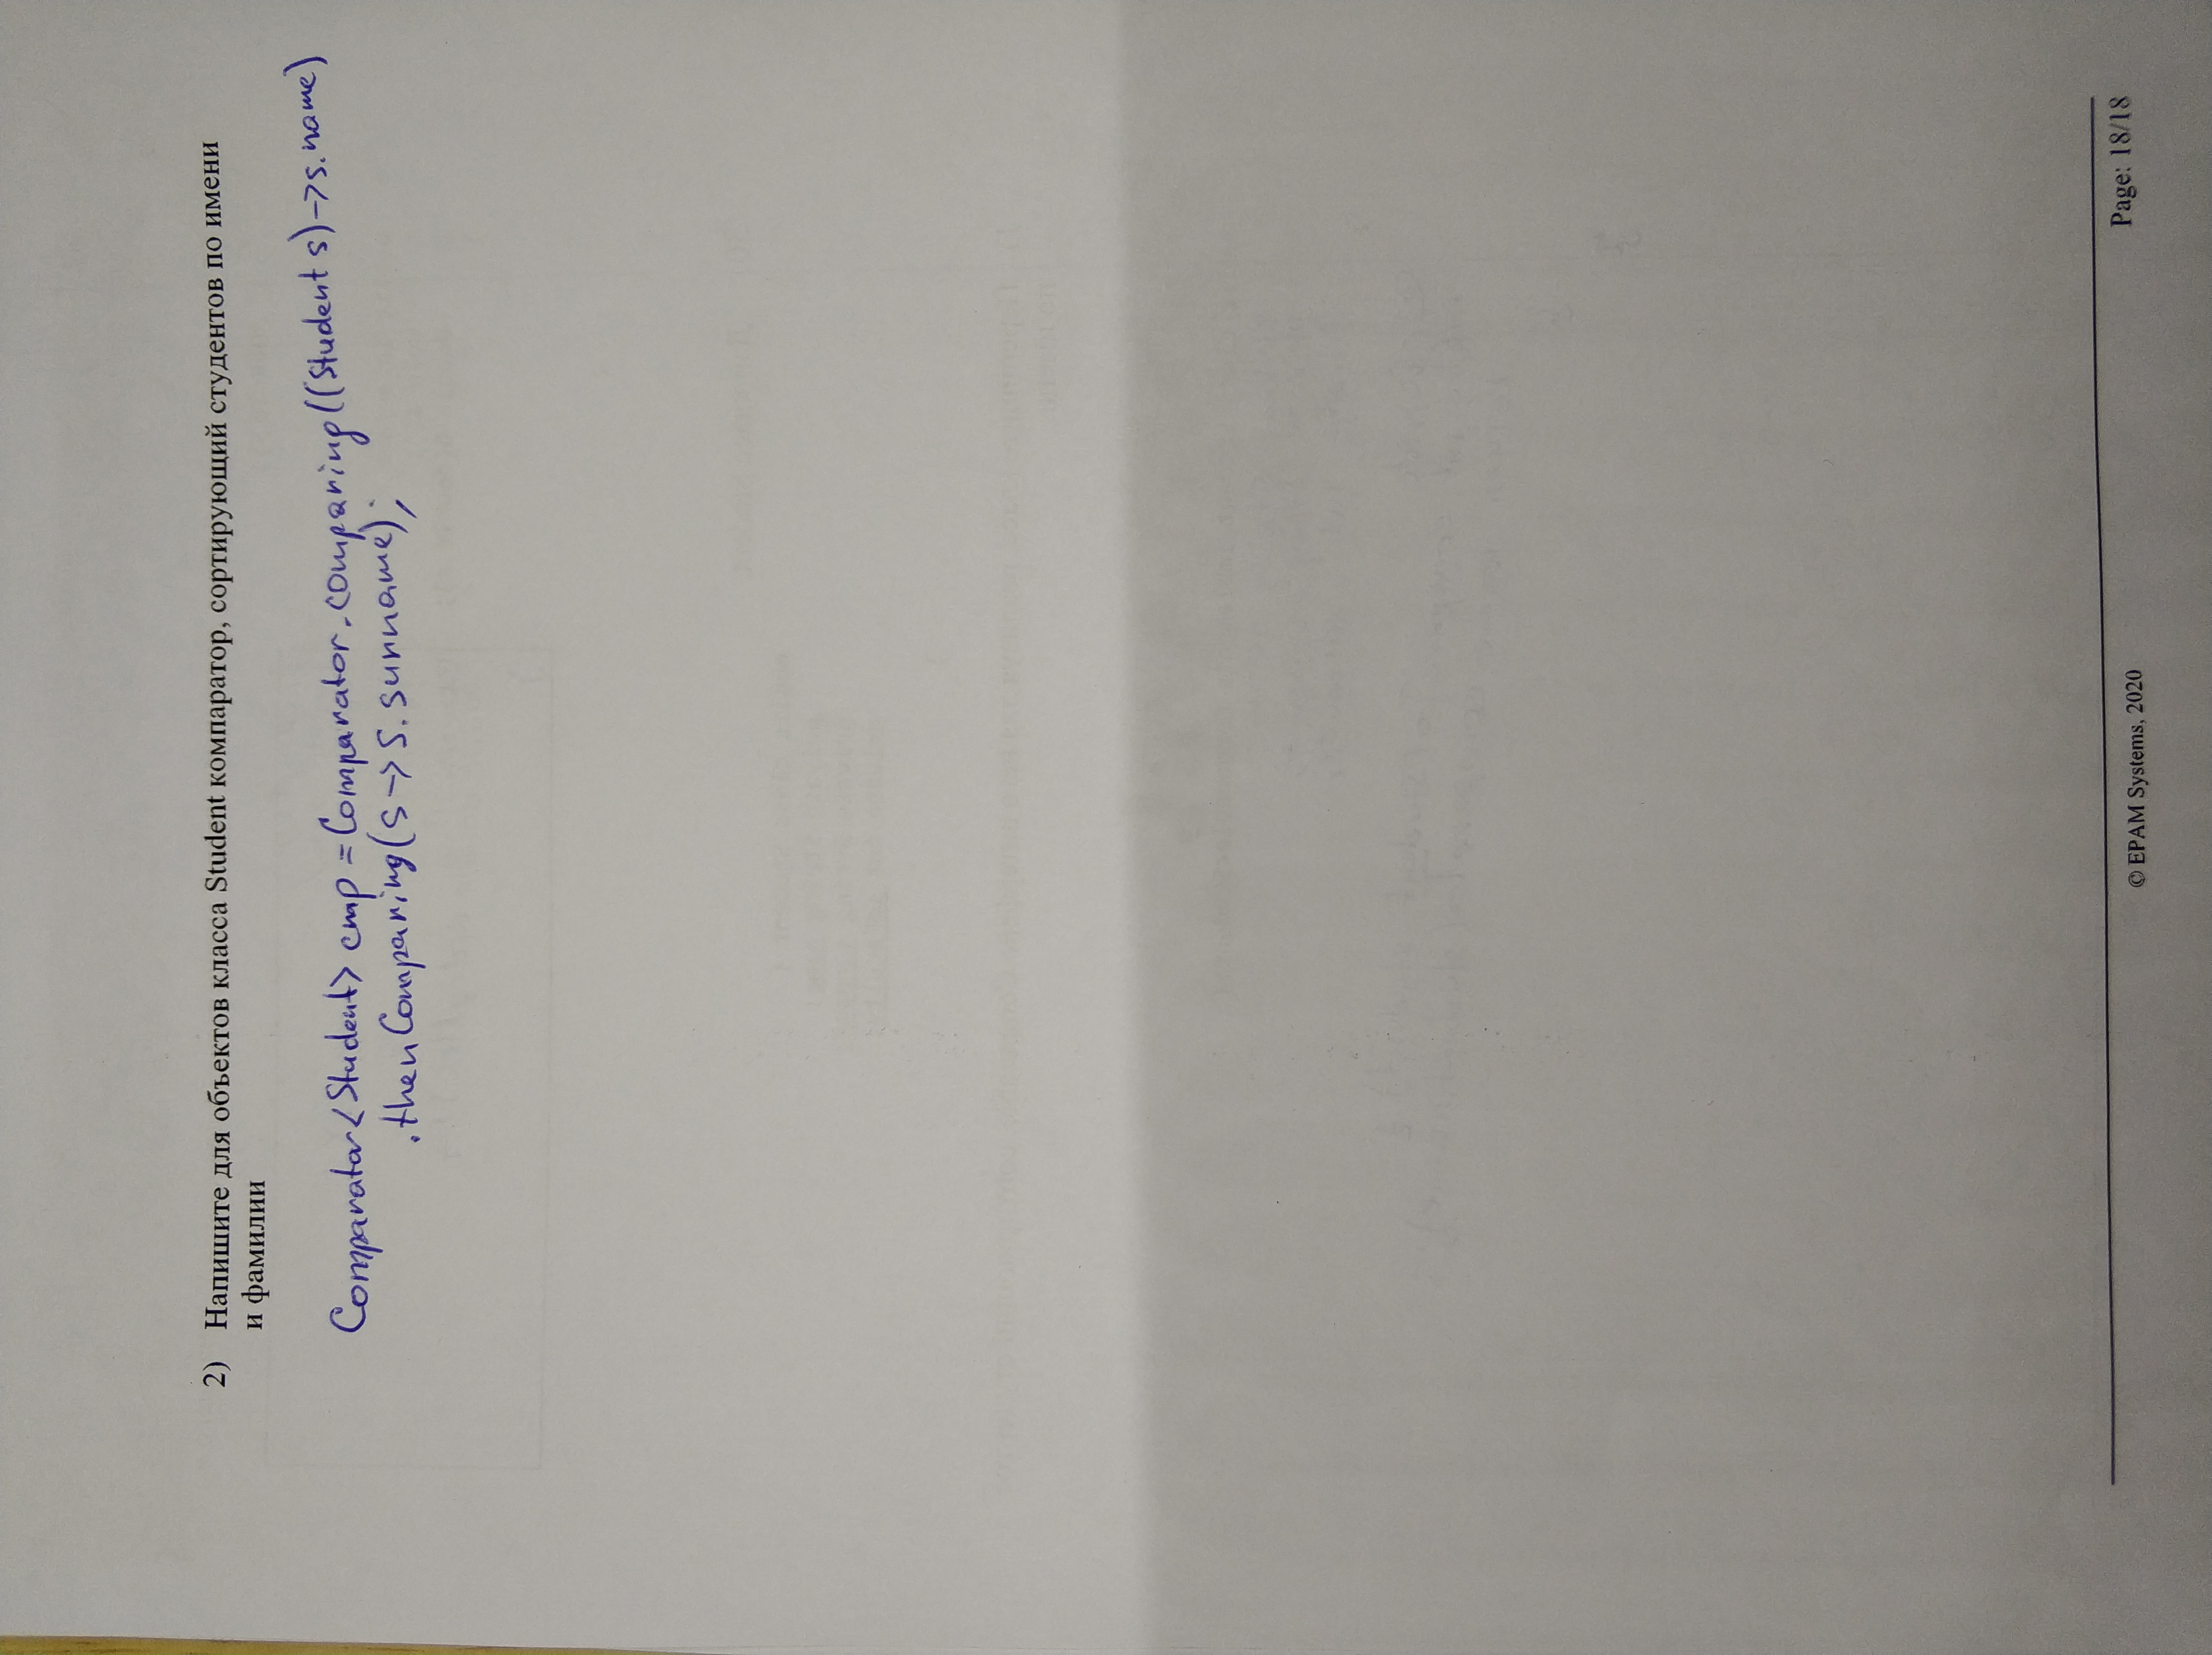 2) Напишите для объектов класса Student компаратор, сортирующий студентов по имени
и фамилии
Comparator<Student> cmp = Comparator.comparing((Student s)->s.name)
.thenComparing(s->s.surname);
© EPAM Systems, 2020
Page: 18/18